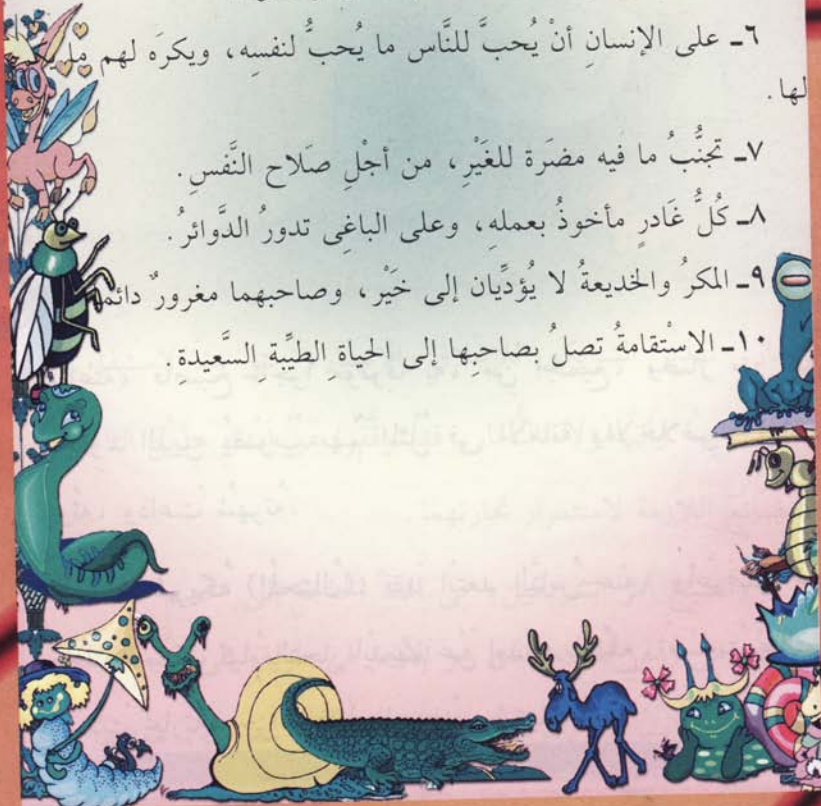 ٦ـ على الإنسانِ أنْ يُحبَّ للنَّاس ما يُحبُّ لنفسِه، ويكرَه لهم ما
لها.
٧ـ تجنُّبُ ما فيه مضَرة للغَيْرِ، من أجْلِ صَلاح النَّفسِ.
٨ـ كُلُّ غَادرٍ مأخوذُ بعملهِ، وعلى الباغِى تدورُ الدَّوائرُ.
٩ـ المكرُ والخديعةُ لا يُؤدِّيان إلى خَيْر، وصاحبهما مغرورٌ
١٠ـ الاسْتقامةُ تصلُ بصاحبِها إلى الحياةِ الطيِّبةِ السَّعيدةِ.